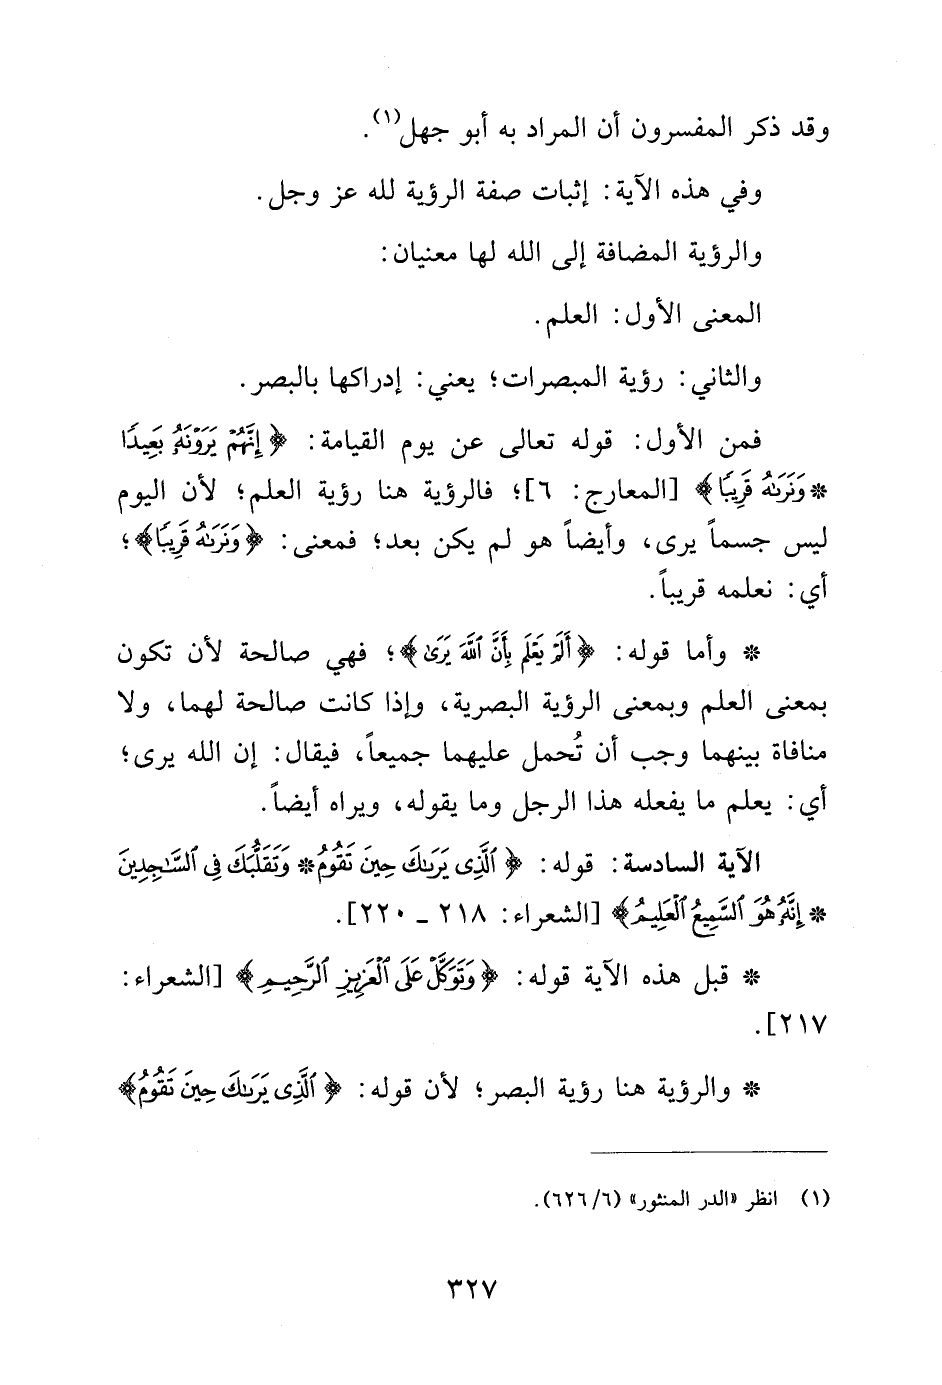 وقد ذكر المفسرون أن المراد به أبو جهل(١).
وفي هذه الآية: إثبات صفة الرؤية لله عز وجل.
والرؤية المضافة إلى الله لها معنيان:
المعنى الأول: العلم.
والثاني: رؤية المبصرات؛ يعني: إدراكها بالبصر.
فمن الأول: قوله تعالى عن يوم القيامة: ﴿إِنَّهُمْ يَرَوْنَهُ بَعِيدًا
* وَنَرَىٰهُ قَرِيبًا﴾ [المعارج: ٦]؛ فالرؤية هنا رؤية العلم؛ لأن اليوم
ليس جسماً يرى، وأيضاً هو لم يكن بعد؛ فمعنى: ﴿وَنَرَىٰهُ قَرِيبًا﴾؛
أي: نعلمه قريباً.
* وأما قوله: ﴿أَلَمْ يَعْلَم بِأَنَّ ٱللَّهَ يَرَىٰ﴾؛ فهي صالحة لأن تكون
بمعنى العلم وبمعنى الرؤية البصرية، وإذا كانت صالحة لهما، ولا
منافاة بينهما وجب أن تُحمل عليهما جميعاً، فيقال: إن الله يرى؛
أي: يعلم ما يفعله هذا الرجل وما يقوله، ويراه أيضاً.
الآية السادسة: قوله: ﴿ٱلَّذِى يَرَىٰكَ حِينَ تَقُومُ * وَتَقَلُّبَكَ فِى ٱلسَّٰجِدِينَ
* إِنَّهُ هُوَ ٱلسَّمِيعُ ٱلْعَلِيمُ﴾ [الشعراء: ٢١٨ - ٢٢٠].
* قبل هذه الآية قوله: ﴿وَتَوَكَّلْ عَلَى ٱلْعَزِيزِ ٱلرَّحِيمِ﴾ [الشعراء:
٢١٧].
* والرؤية هنا رؤية البصر؛ لأن قوله: ﴿ٱلَّذِى يَرَىٰكَ حِينَ تَقُومُ﴾
(١) انظر «الدر المنثور» (٦/ ٦٢٦).
٣٢٧